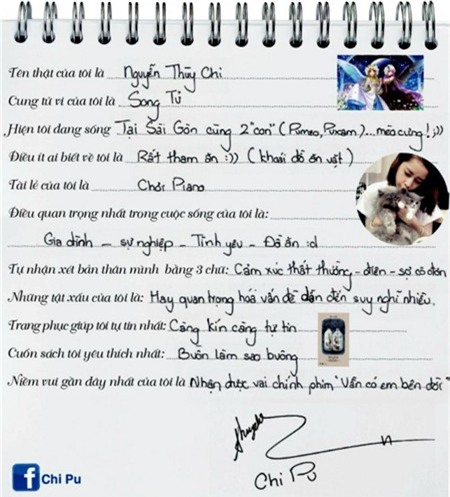 Tên thật của tôi là Nguyễn Thùy Chi
Cung tử vi của tôi là Song Tử
Hiện tôi đang sống Tại Sài Gòn cùng 2 "con" (Pumeo, Puxam)... mèo cưng! ;))
Điều ít ai biết về tôi là Rất tham ăn :)) (khoái đồ ăn vặt)
Tài lẻ của tôi là Chơi Piano
Điều quan trọng nhất trong cuộc sống của tôi là:
Gia đình - sự nghiệp - Tình yêu - Đồ ăn :d
Tự nhận xét bản thân mình bằng 3 chữ: Cảm xúc thất thường - điên - sợ cô đơn
Những tật xấu của tôi là: Hay quan trọng hoá vấn đề dẫn đến suy nghĩ nhiều.
Trang phục giúp tôi tự tin nhất: Càng kín càng tự tin
Cuốn sách tôi yêu thích nhất: Buồn làm sao buông
Niềm vui gần đây nhất của tôi là Nhận được vai chính phim "Vẫn có em bên đời"
Chi Pu
f Chi Pu